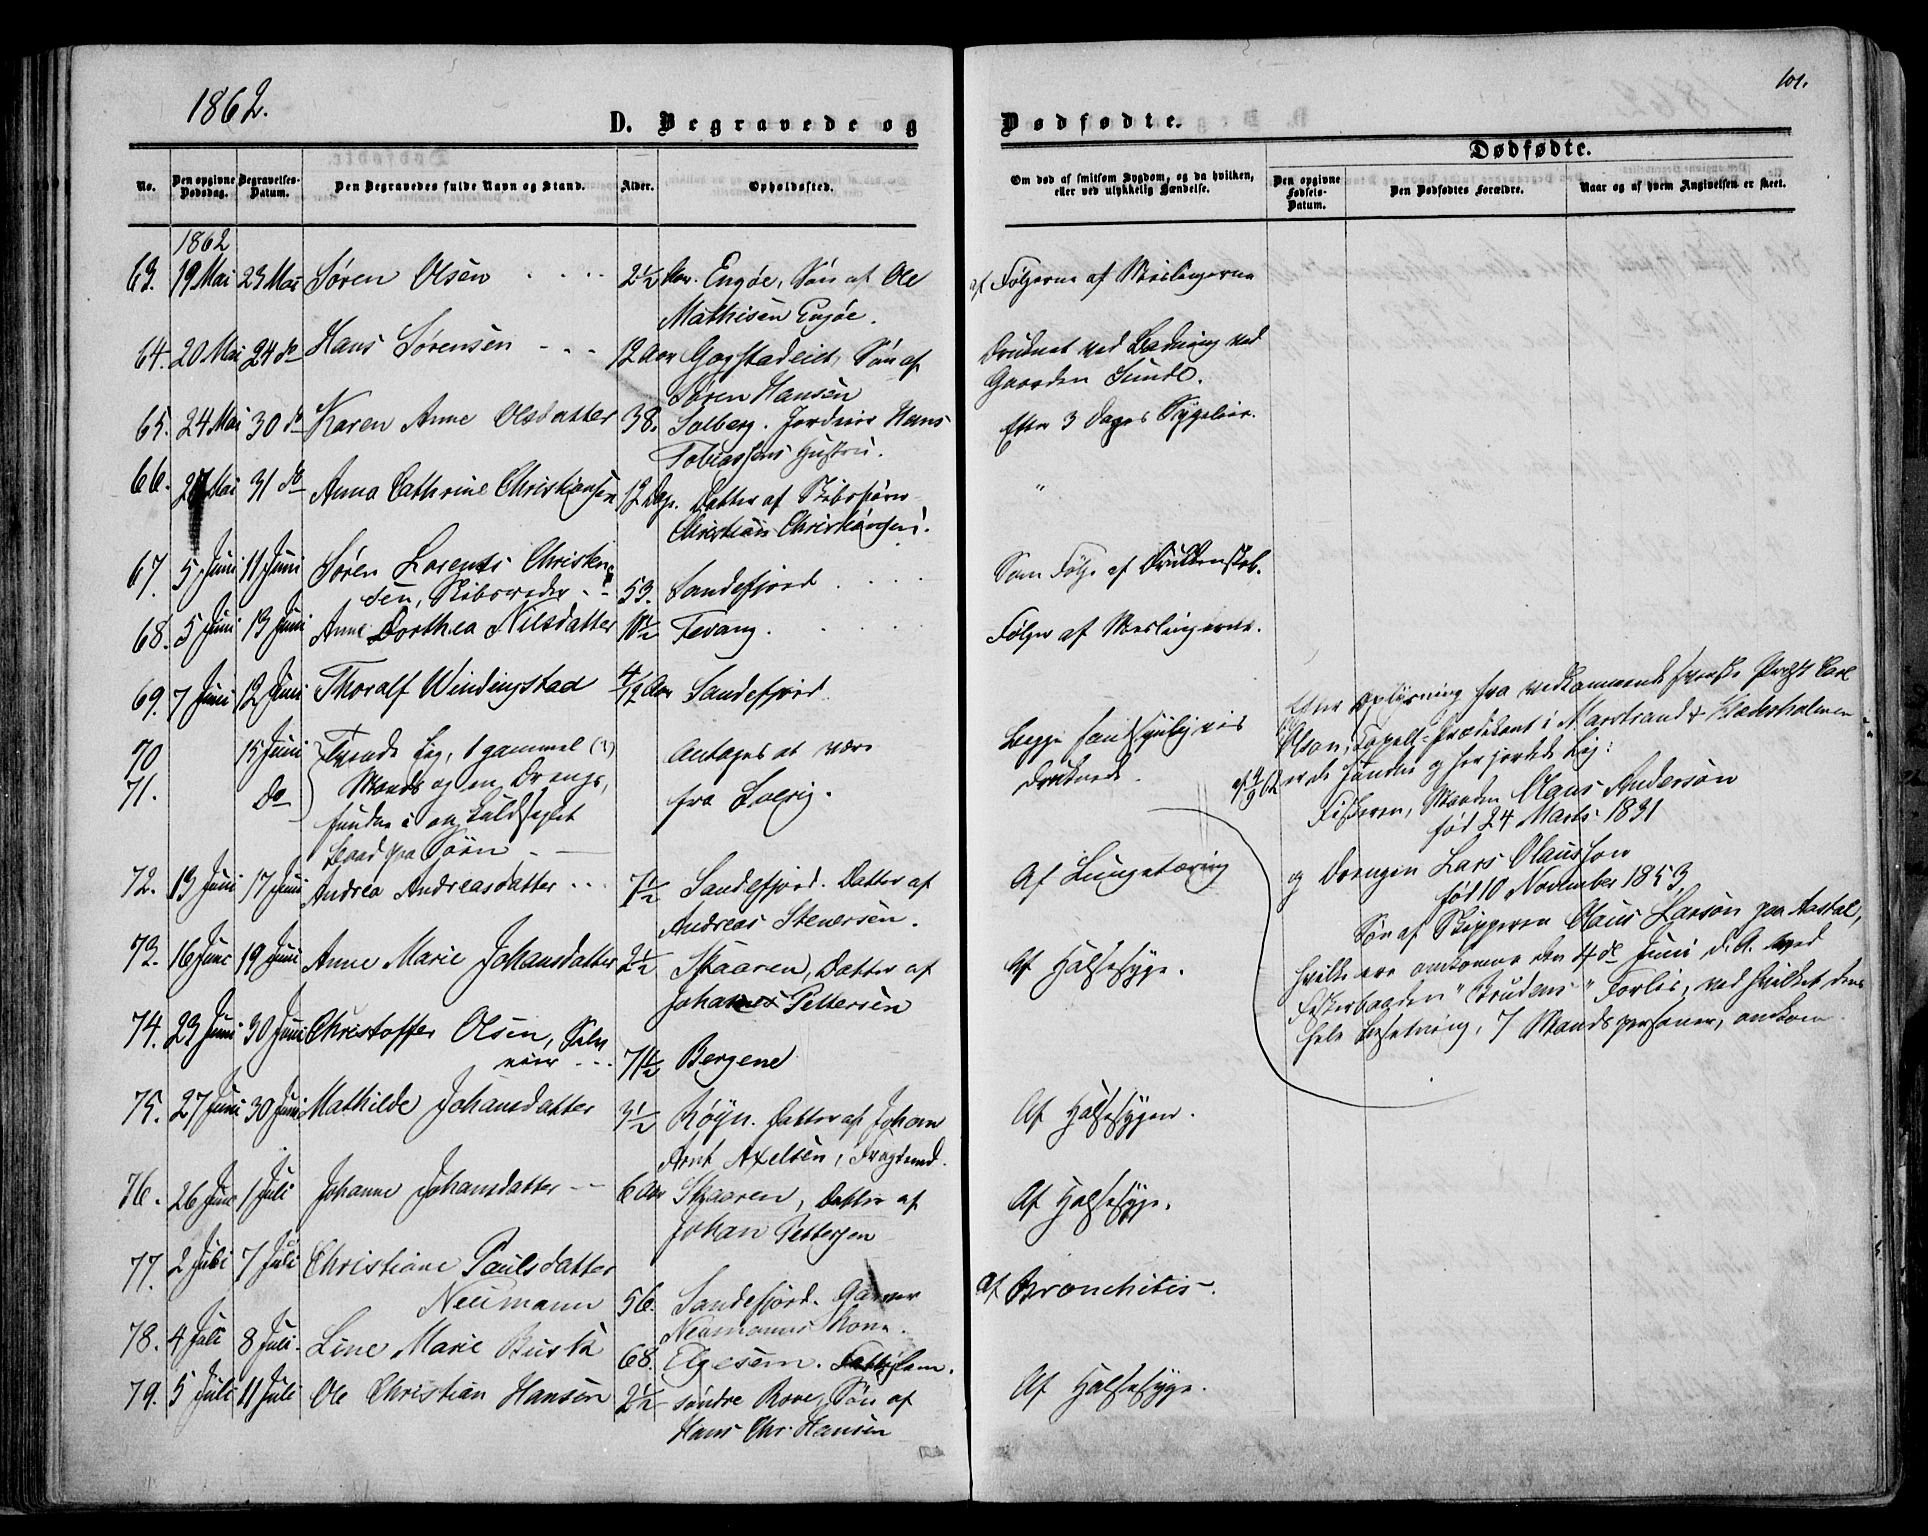 1862.
101.
D. Begravede og
Dødfødte.
Dødfødte.
No.
Den opgivne Dødsdag.
Begravelses-Datum.
Den Begravedes fulde Navn og Stand.
Alder.
Opholdssted.
Om død af smitsom Sygdom, og da hvilken, eller ved ulykkelig Hændelse.
Den opgivne Fødsels-Datum.
Den Dødfødtes Forældre.
Naar og af hvem Angivelsen er skeet.
1862
63. 19 Mai 23 Mai Søren Olsen 2½ Aar. Engøe, Søn af Ole
Mathisen Engøe.
af Følgerne af Meslingerne
64. 20 Mai 24 do Hans Sørensen 12 Aar Gogstadeiet, Søn af
Søren Hansen
Druknet ved Badning ved
Gaarden Sunde.
65. 24 Mai 30 do Karen Anne Olsdatter 38. Solberg. Jordeier Hans
Tobiassens Hustru.
Efter 3 Dages Sygeleie.
66. 27 Mai 31 do Anna Cathrine Christiansen 12 Dage. Datter af Skibsfører
Christian Christiansen.
"
67. 5 Juni 11 Juni Søren Lorents Christen-
sen, Skibsreder 53. Sandefjord
Som Følge af Drukkenskab.
68. 5 Juni 13 Juni Anne Dorthea Nilsdatter 10½ Fevang.
Følger af Meslingerne.
69. 7 Juni 12 Juni Thoralf Windingstad 4/12 Aar Sandefjord
70 15 Juni Tvende Lig, 1 gammel (?)
71. do Mands og en Drengs,
fundne i en kuldseilet
Baad paa Søen
Antages at være
fra Sverig.
Begge sandsynligvis
druknede.
Efter Oplysning fra vedkommende svenske Præst Carl
Olson, Capell-Prædikant i Marstrand &
af 4/9 62 er de fundne og her jordede Lig:
Fiskeren, Manden Claus Anderson
født 24 Marts 1831
og Drengen Lars Olausson
født 10 November 1853,
Søn af Skipperen Olaus Larson paa Aastol,
hvilke ere omkomne den 4de Juni d. A. ved
Fiskerbaaden "Bruden"s Forlis, ved hvilket dens
hele Besætning, 7 Mandspersoner, omkom.
72. 13 Juni 17 Juni Andrea Andreasdatter 7½ Sandefjord. Datter af
Andreas Stenersen.
Af Lungetæring
73. 16 Juni 19 Juni Anne Marie Johansdatter 2½ Skaaren, Datter af
Johannes Pettersen
Af Halsesyge.
74. 23 Juni 30 Juni Christoffer Olsen, Selv-
eier 71½ Bergene
75. 27 Juni 30 Juni Mathilde Johansdatter 3½ Røyn. Datter af Johan
Arnt Axelsen,
Af Halsesygen.
76. 26 Juni 1 Juli Johanne Johansdatter 6 Aar Skaaren, Datter af
Johan Pettersen
Af Halsesyge.
77. 2 Juli 7 Juli Christiane Paulsdatter
Neumann 56. Sandefjord. Garver
Neumanns Kone.
Af Bronchitis.
78. 4 Juli 8 Juli. Line Marie Busk 68. Elgesem. Fattiglem.
79. 5 Juli 11 Juli Ole Christian Hansen 2½ søndre Rove, Søn af
Hans Chr. Hansen
Af Halsesyge.